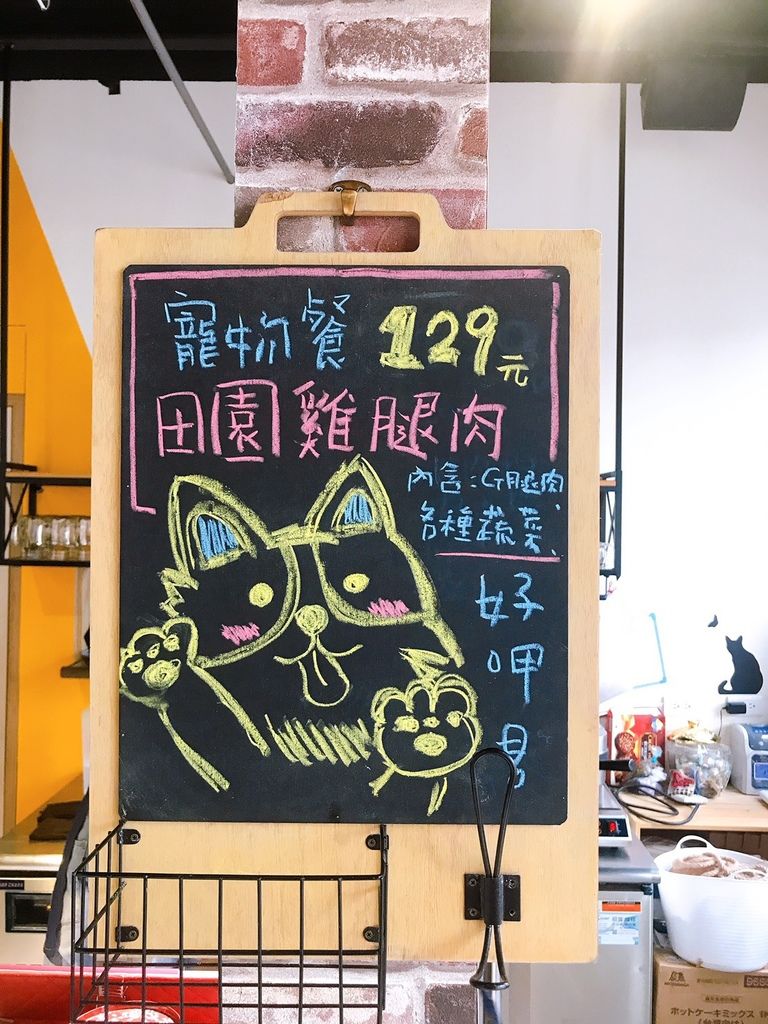 寵物餐 129元
田園雞腿肉
內含:G腿肉、
各種蔬菜、
好
呷
ホットケーキミックス